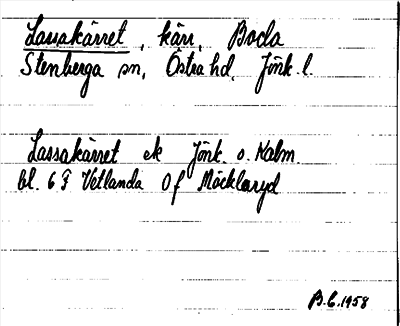 Lassakärret, kärr, Boda
Stenberga sn, Östra hd, Jönk. l.
Lassakärret ek Jönk. o. Kalm.
bl. 6 F Vetlanda Of Möcklaryd
B.G. 1958